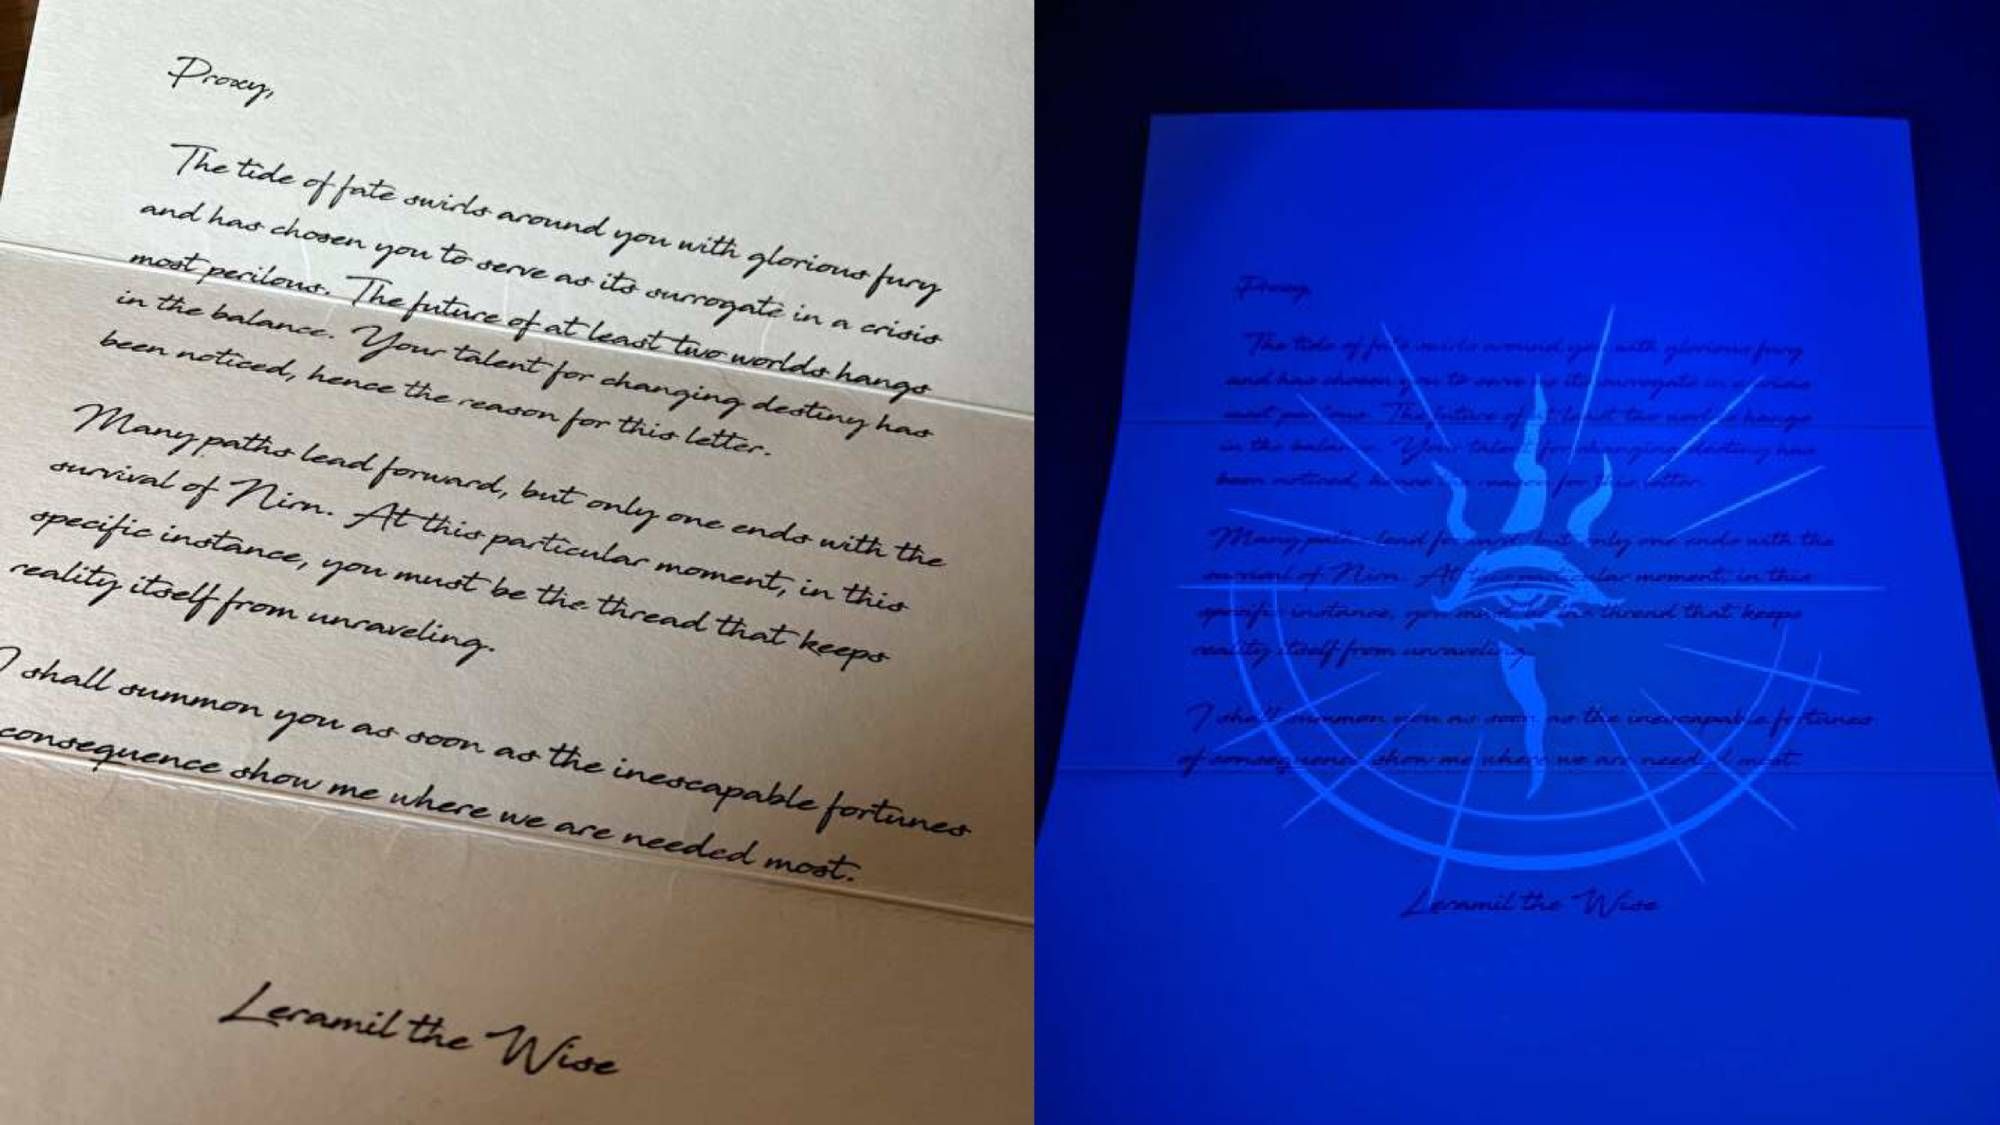 Proxy,
The tide of fate swirls around you with glorious fury
and has chosen you to serve as its surrogate in a crisis
most perilous. The future of at least two worlds hangs
in the balance. Your talent for changing destiny has
been noticed, hence the reason for this letter.
Many paths lead forward, but only one ends with the
survival of Nirn. At this particular moment, in this
specific instance, you must be the thread that keeps
reality itself from unraveling.
I shall summon you as soon as the inescapable fortunes
consequence show me where we are needed most.
Leramil the Wise
Proxy,
The tide of fate swirls around you with glorious fury
and has chosen you to serve as its surrogate in a crisis
most perilous. The future of at least two worlds hangs
in the balance. Your talent for changing destiny has
been noticed, hence the reason for this letter.
Many paths lead forward, but only one ends with the
survival of Nirn. At this particular moment, in this
specific instance, you must be the thread that keeps
reality itself from unraveling.
I shall summon you as soon as the inescapable fortunes
of consequence show me where we are needed most.
Leramil the Wise